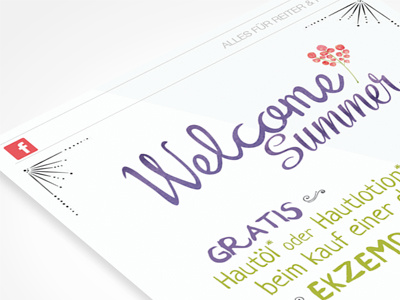 ALLES FÜR REITER &
f
Welcome
Summer
GRATIS
Hautöl* oder Hautlotion*
beim kauf einer